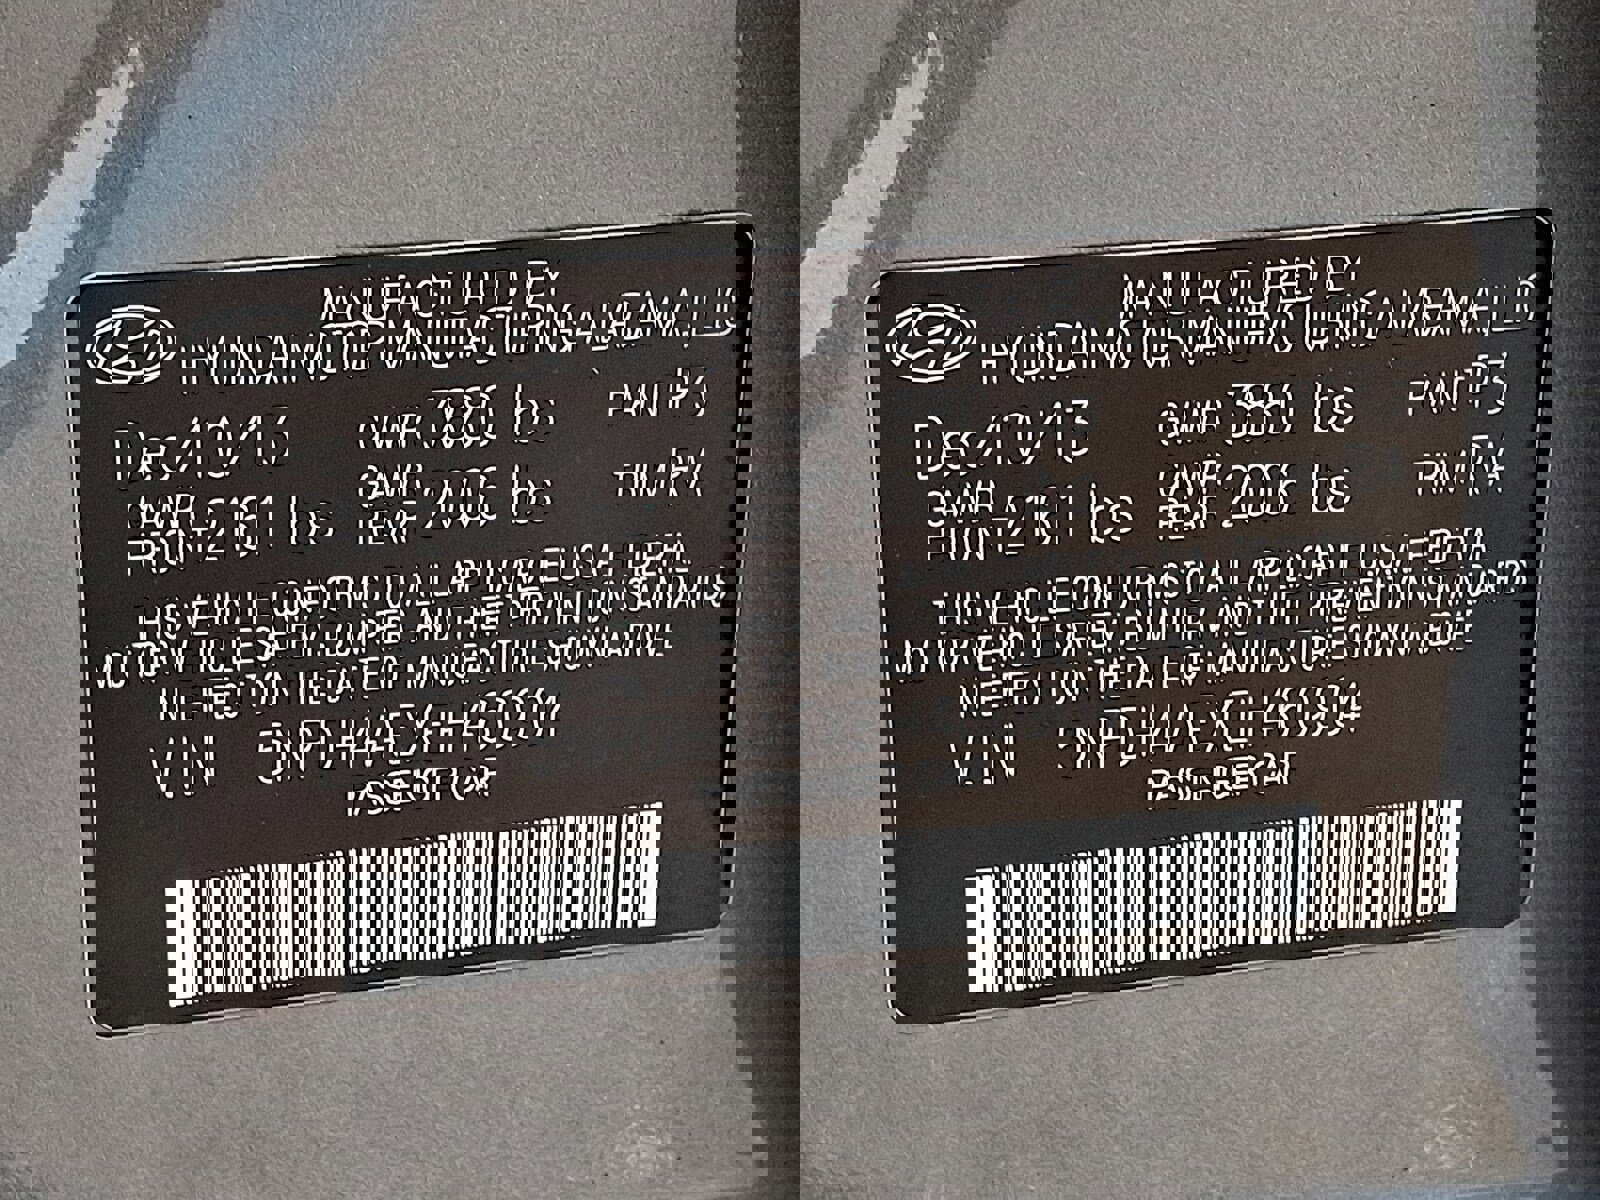 MANUFACTURED BY
HYUNDAI MOTOR MANUFACTURING ALABAMA, LLC
Dec/10/13 GVWR 3880 lbs PAINT P3
GAWR GAWR TRIM
FRONT lbs REAR lbs
THIS VEHICLE CONFORMS TO ALL APPLICABLE U.S.A. FEDERAL
MOTOR VEHICLE SAFETY, BUMPER, AND THEFT PREVENTION STANDARDS
IN EFFECT ON THE DATE OF MANUFACTURE SHOWN ABOVE
VIN
PASSENGER CAR
MANUFACTURED BY
HYUNDAI MOTOR MANUFACTURING ALABAMA, LLC
Dec/10/13 GVWR 3880 lbs PAINT P3
GAWR GAWR TRIM
FRONT lbs REAR lbs
THIS VEHICLE CONFORMS TO ALL APPLICABLE U.S.A. FEDERAL
MOTOR VEHICLE SAFETY, BUMPER, AND THEFT PREVENTION STANDARDS
IN EFFECT ON THE DATE OF MANUFACTURE SHOWN ABOVE
VIN
PASSENGER CAR